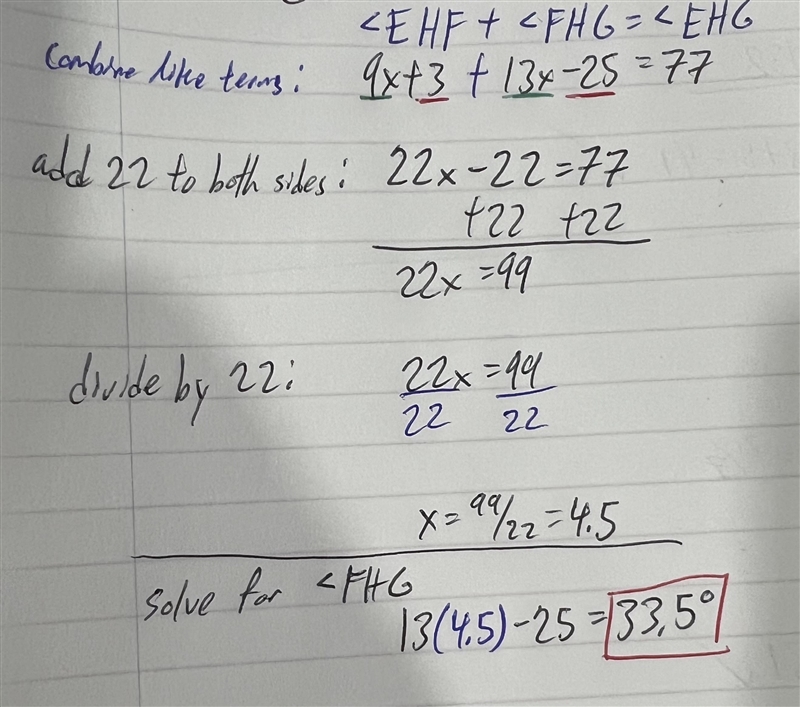 <EHF + <FHG = <EHG
Combine like terms: 9x+3 + 13x-25 = 77
add 22 to both sides: 22x-22=77
+22 +22
22x=99
divide by 22: 22x=99
22 22
x= 99/22 = 4.5
solve for <FHG
13(4.5)-25 = 33.5°